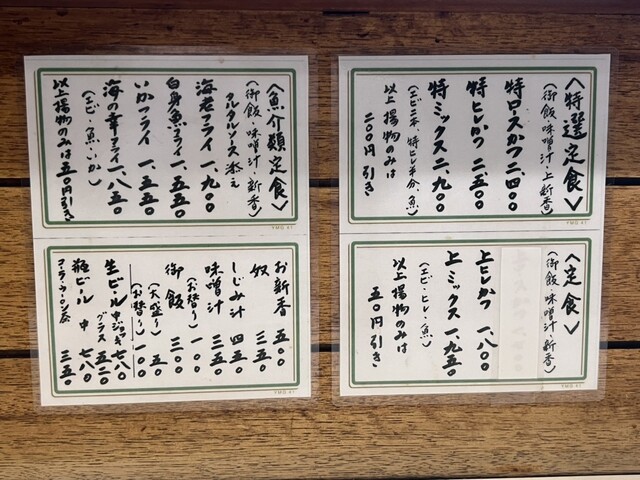 〈特選定食〉
(御飯・味噌汁・上新香)
特ロースかつ 二、四〇〇
特ヒレかつ 二、五〇〇
特ミックス 二、九〇〇
(エビ二本、特ヒレ半分、魚)
以上揚物のみは
二〇〇円引き
YMG 41
〈定食〉
(御飯・味噌汁・新香)
上ヒレかつ 一、八〇〇
上ミックス 一、九五〇
(エビ・ヒレ・魚)
以上揚物のみは
五〇円引き
YMG 41
〈魚介類定食〉
(御飯・味噌汁・新香)
タルタルソース添え
海老フライ 一、九〇〇
白身魚フライ 一、五五〇
いかフライ 一、五五〇
海の幸フライ 一、八五〇
(エビ・魚・いか)
以上揚物のみは五〇円引き
YMG 41
お新香 五〇〇
奴 三五〇
しじみ汁 四五〇
味噌汁 三五〇
(お替り) 一〇〇
御飯 三〇〇
(大盛り) 五〇
(お替り) 一〇〇
生ビール 中ジョッキ 七八〇
グラス 五二〇
瓶ビール 中 七八〇
コーラ・ウーロン茶 三五〇
YMG 41